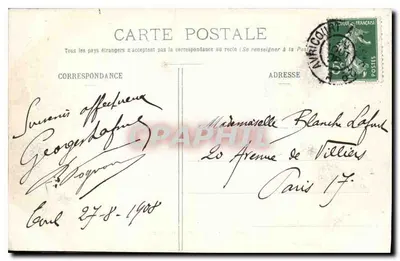 CARTE POSTALE
Tous les pays étrangers n'acceptent pas la correspondance au recto (Se renseigner à la Poste
CORRESPONDANCE
ADRESSE
AVRICOURT
POSTES
Souvenir affectueux
Georges Lafont
Toul 27-8-1908
Mademoiselle Blanche Lafont
20 Avenue de Villiers
Paris 17.
PHILAPHIL